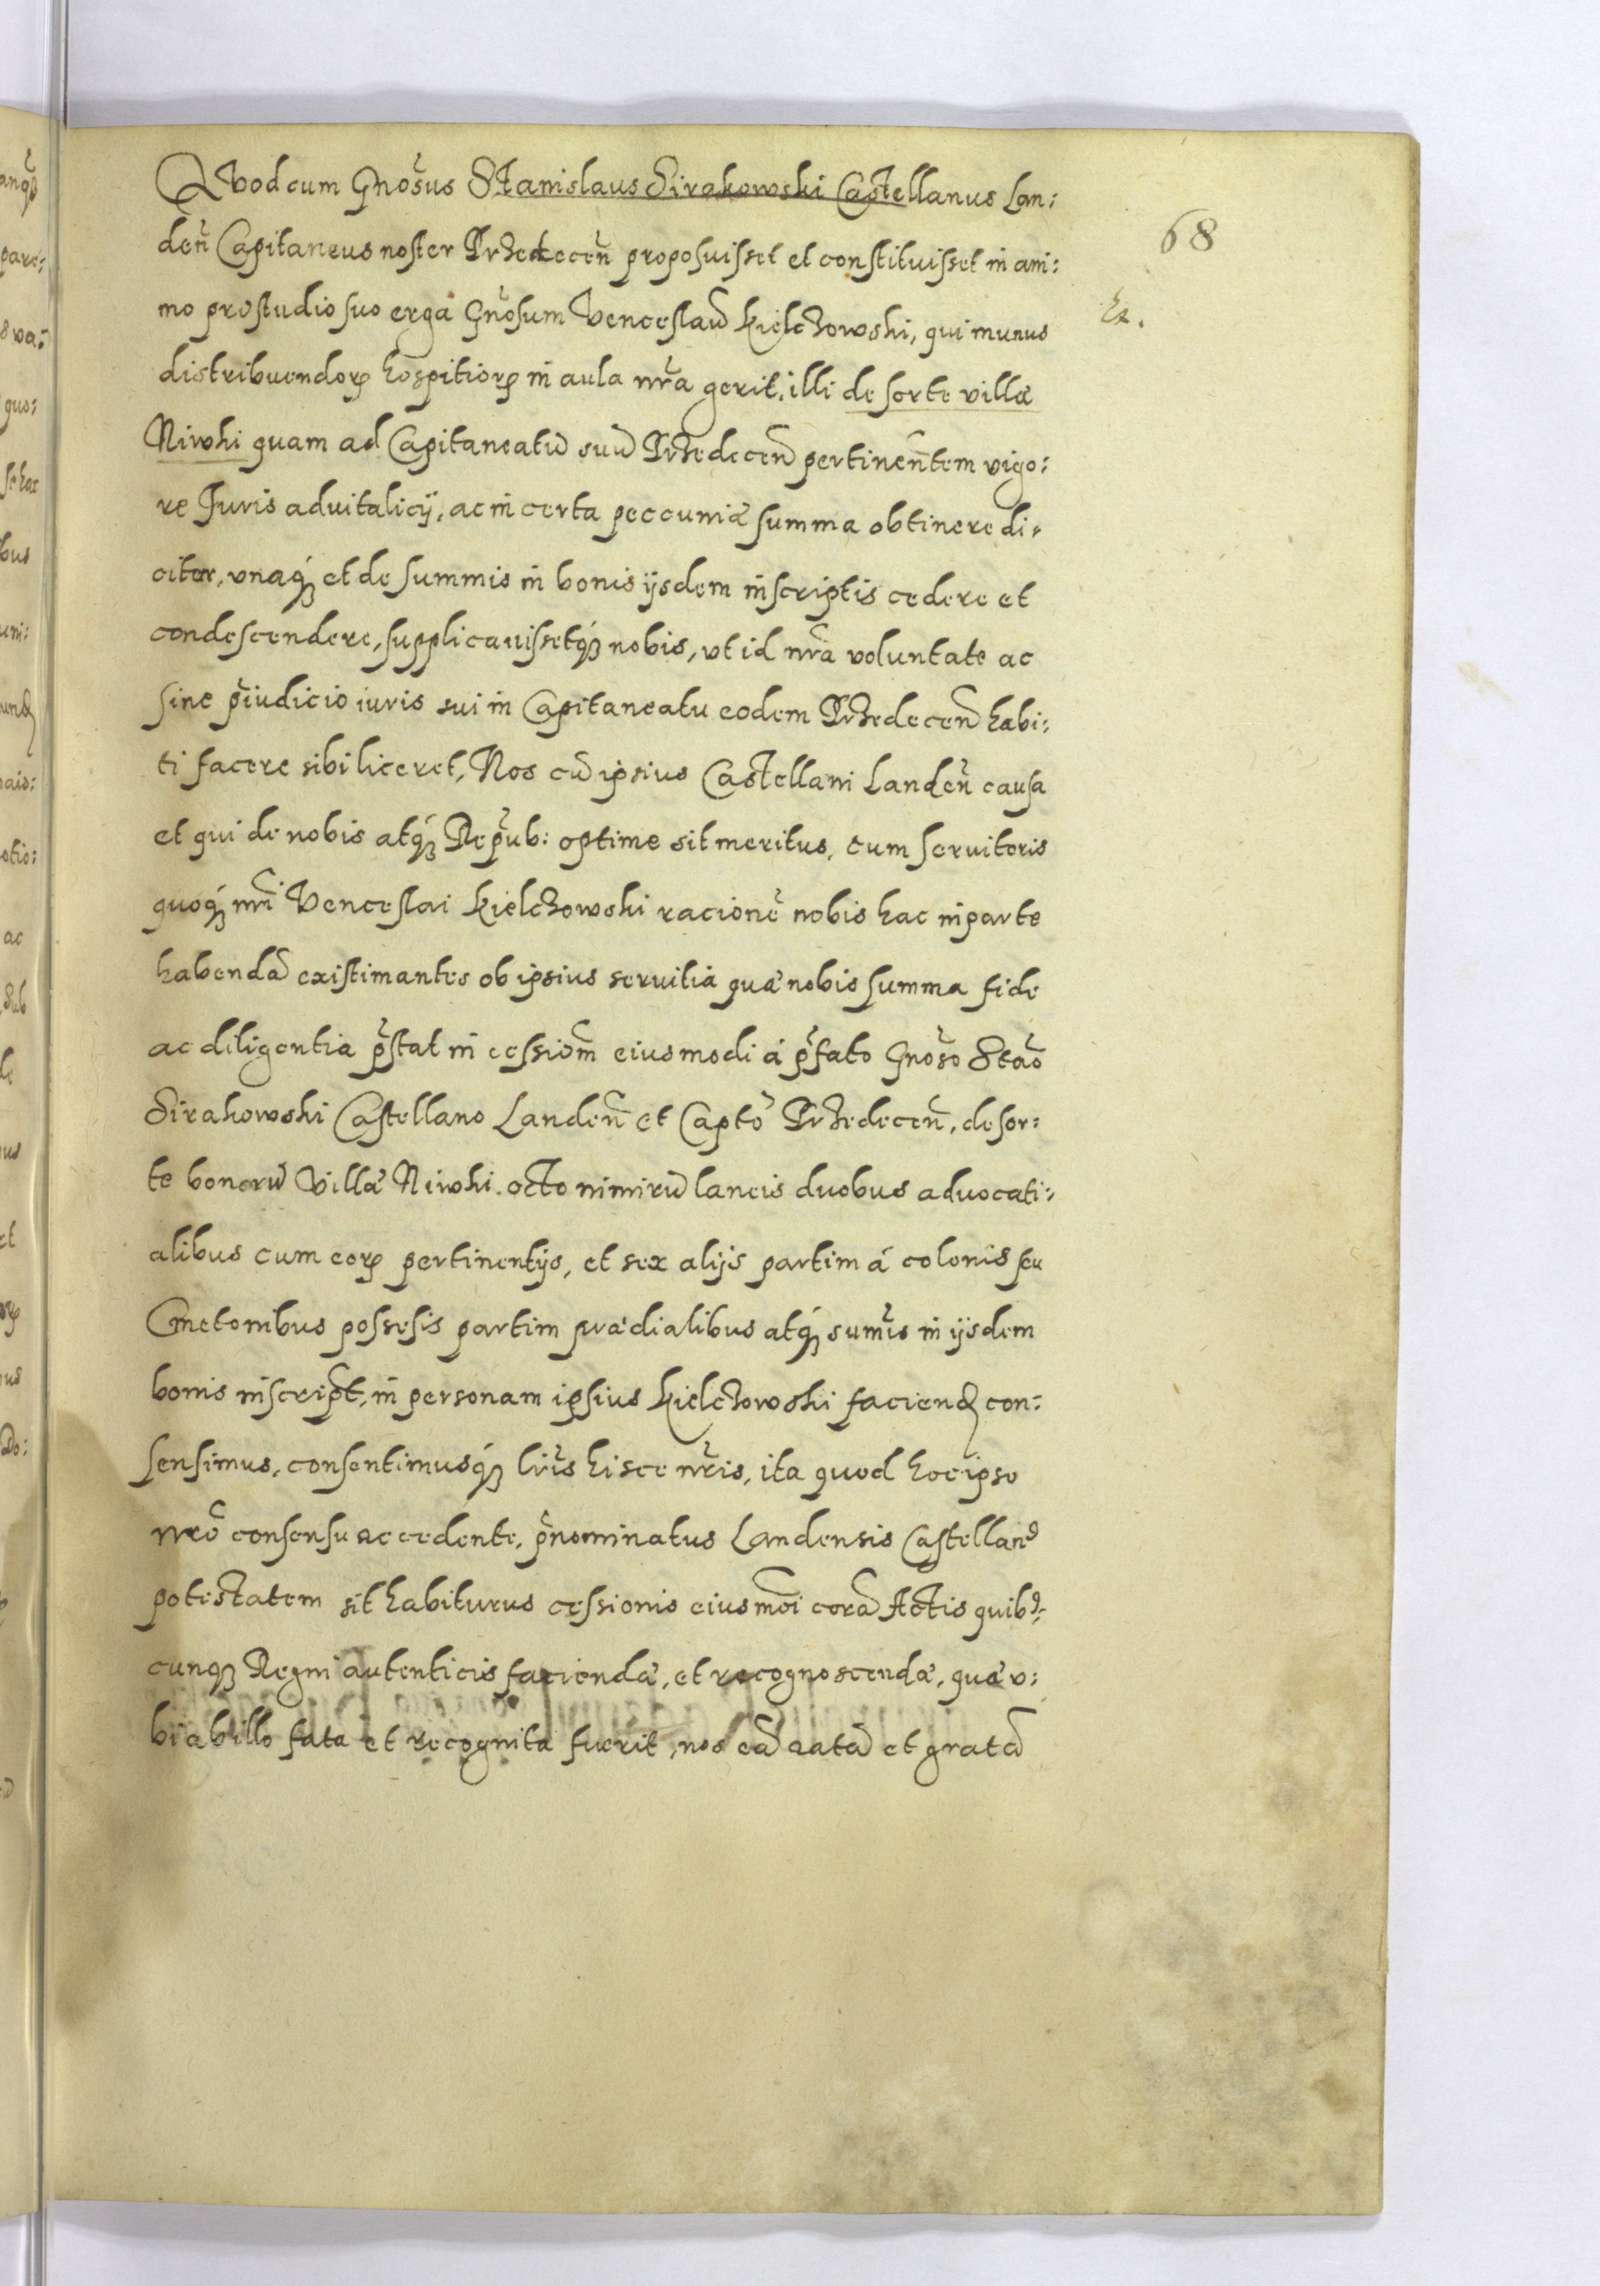 Qvod cum Gnosus Stanislaus Sirakowski Castellanus Lan:
den̄ Capitaneus noster Przedecen̄ proposuisset et constituisset in ani:
68
mo pro studio suo erga Gnosum Venceslaū Kielczowski, qui munus
distribuendoꝝ hospitioꝝ in aula nr̄a gerit, illi de sorte villæ
Niwki quam ad Capitaneatū suū Przedecen̄ pertinen̄tem vigo:
re Iuris aduitalicij, ac in certa peccuniæ summa obtinere di:
citer, vnaqꝫ et de summis in bonis ijsdem inscriptis cedere et
condescendere, supplicauissetqꝫ nobis, vt id nr̄a voluntate ac
sine p̄iudicio iuris sui in Capitaneatu eodem Przedecen̄ habi:
ti facere sibi liceret, Nos cū ipsius Castellani Landen̄ causa
et qui de nobis atqꝫ Repub: optime sit meritus, cum seruitoris
quoqꝫ nr̄i Venceslai Kielczowski racionē nobis hac in parte
habendā existimantes ob ipsius seruitia quæ nobis summa fide
ac diligentia p̄stat in cessiōm eiusmodi á p̄fato Gnoso Stāo
Sirakowski Castellano Landen̄ et Capto Przedecen̄, de sor:
te bonorū Villæ Niwki. octo nimirū laneis duobus aduocati:
alibus cum eoꝝ pertinentijs, et sex alijs partim á colonis seu
Cmetonibus possesis partim prædialibus atqꝫ sum̄is in ijsdem
bonis inscript, in personam ipsius Kielczowski faciend con:
sensimus, consentimusqꝫ lr̄is hisce nr̄is, ita quod hoc ipso
nr̄o consensu accedente, p̄nominatus Landensis Castellanꝰ
potestatem sit habiturus cessionis eiusmōi corā Actis quibꝰ:
cunqꝫ Regni autenticis faciendæ, et recognoscendæ, quæ v:
bi ab illo fata et recognita fuerit, nos eā ratā et gratā